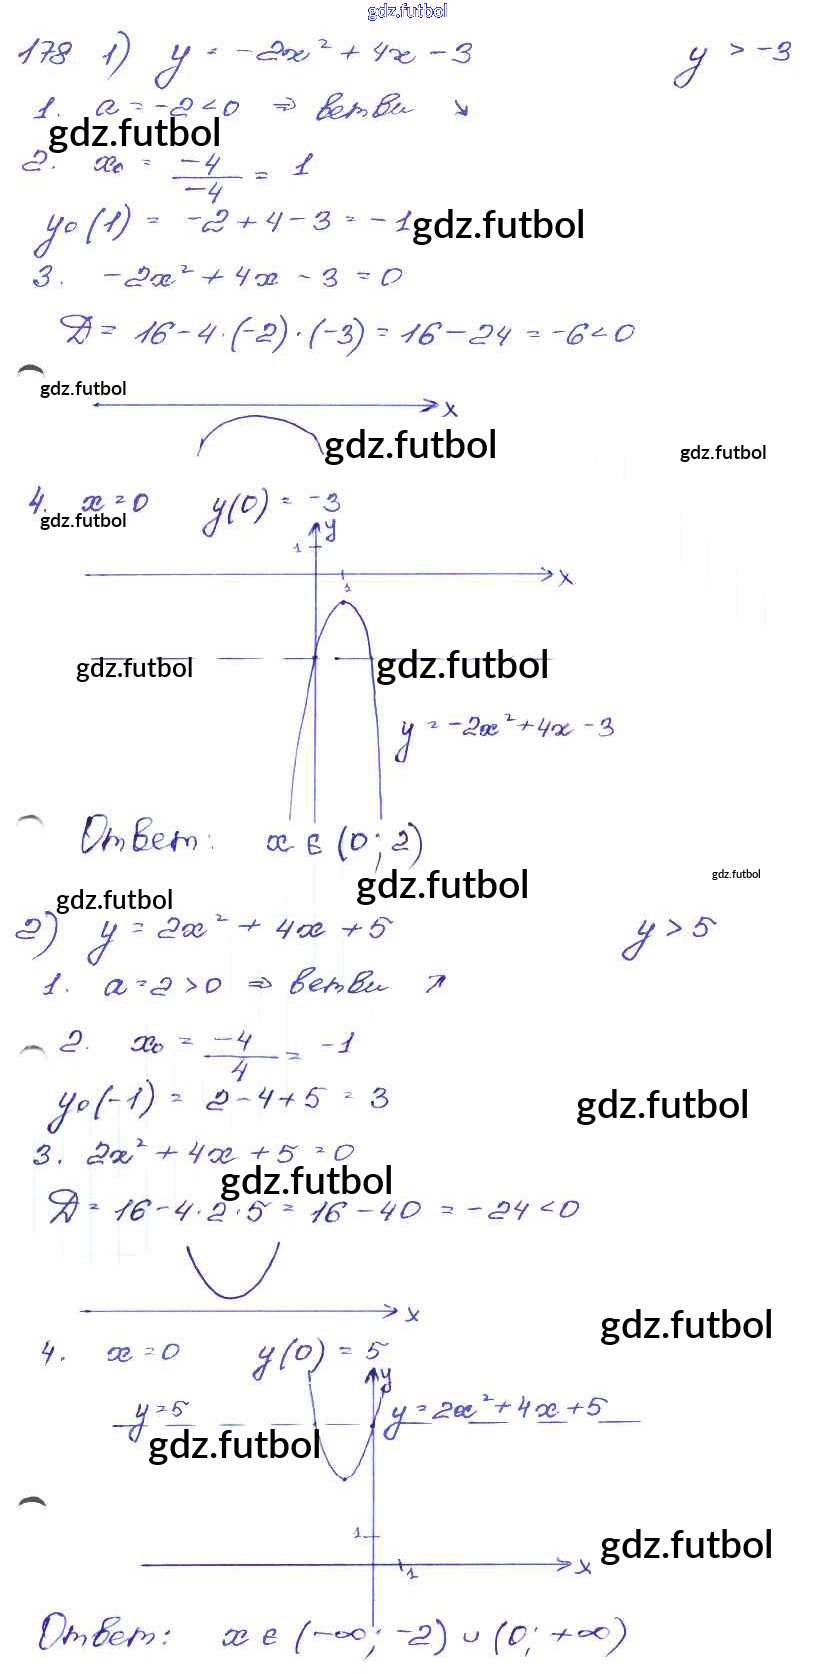 gdz.futbol
178 1) y = -2x² + 4x - 3 y > -3
1. a = -2 < 0 ⇒ ветви ↘
gdz.futbol
2. x₀ = -4/-4 = 1
y₀(1) = -2 + 4 - 3 = -1 gdz.futbol
3. -2x² + 4x - 3 = 0
D = 16 - 4·(-2)·(-3) = 16 - 24 = -6 < 0
gdz.futbol
x
gdz.futbol
gdz.futbol
4. x = 0 y(0) = -3
gdz.futbol
y
1
x
1
gdz.futbol gdz.futbol
y = -2x² + 4x - 3
Ответ: x ∈ (0; 2)
gdz.futbol
gdz.futbol
gdz.futbol
2) y = 2x² + 4x + 5 y > 5
1. a = 2 > 0 ⇒ ветви ↗
2. x₀ = -4/4 = -1
y₀(-1) = 2 - 4 + 5 = 3 gdz.futbol
3. 2x² + 4x + 5 = 0
gdz.futbol
D = 16 - 4·2·5 = 16 - 40 = -24 < 0
x
gdz.futbol
4. x = 0 y(0) = 5
y
y = 5 y = 2x² + 4x + 5
gdz.futbol
1
gdz.futbol
x
1
Ответ: x ∈ (-∞; -2) ∪ (0; +∞)